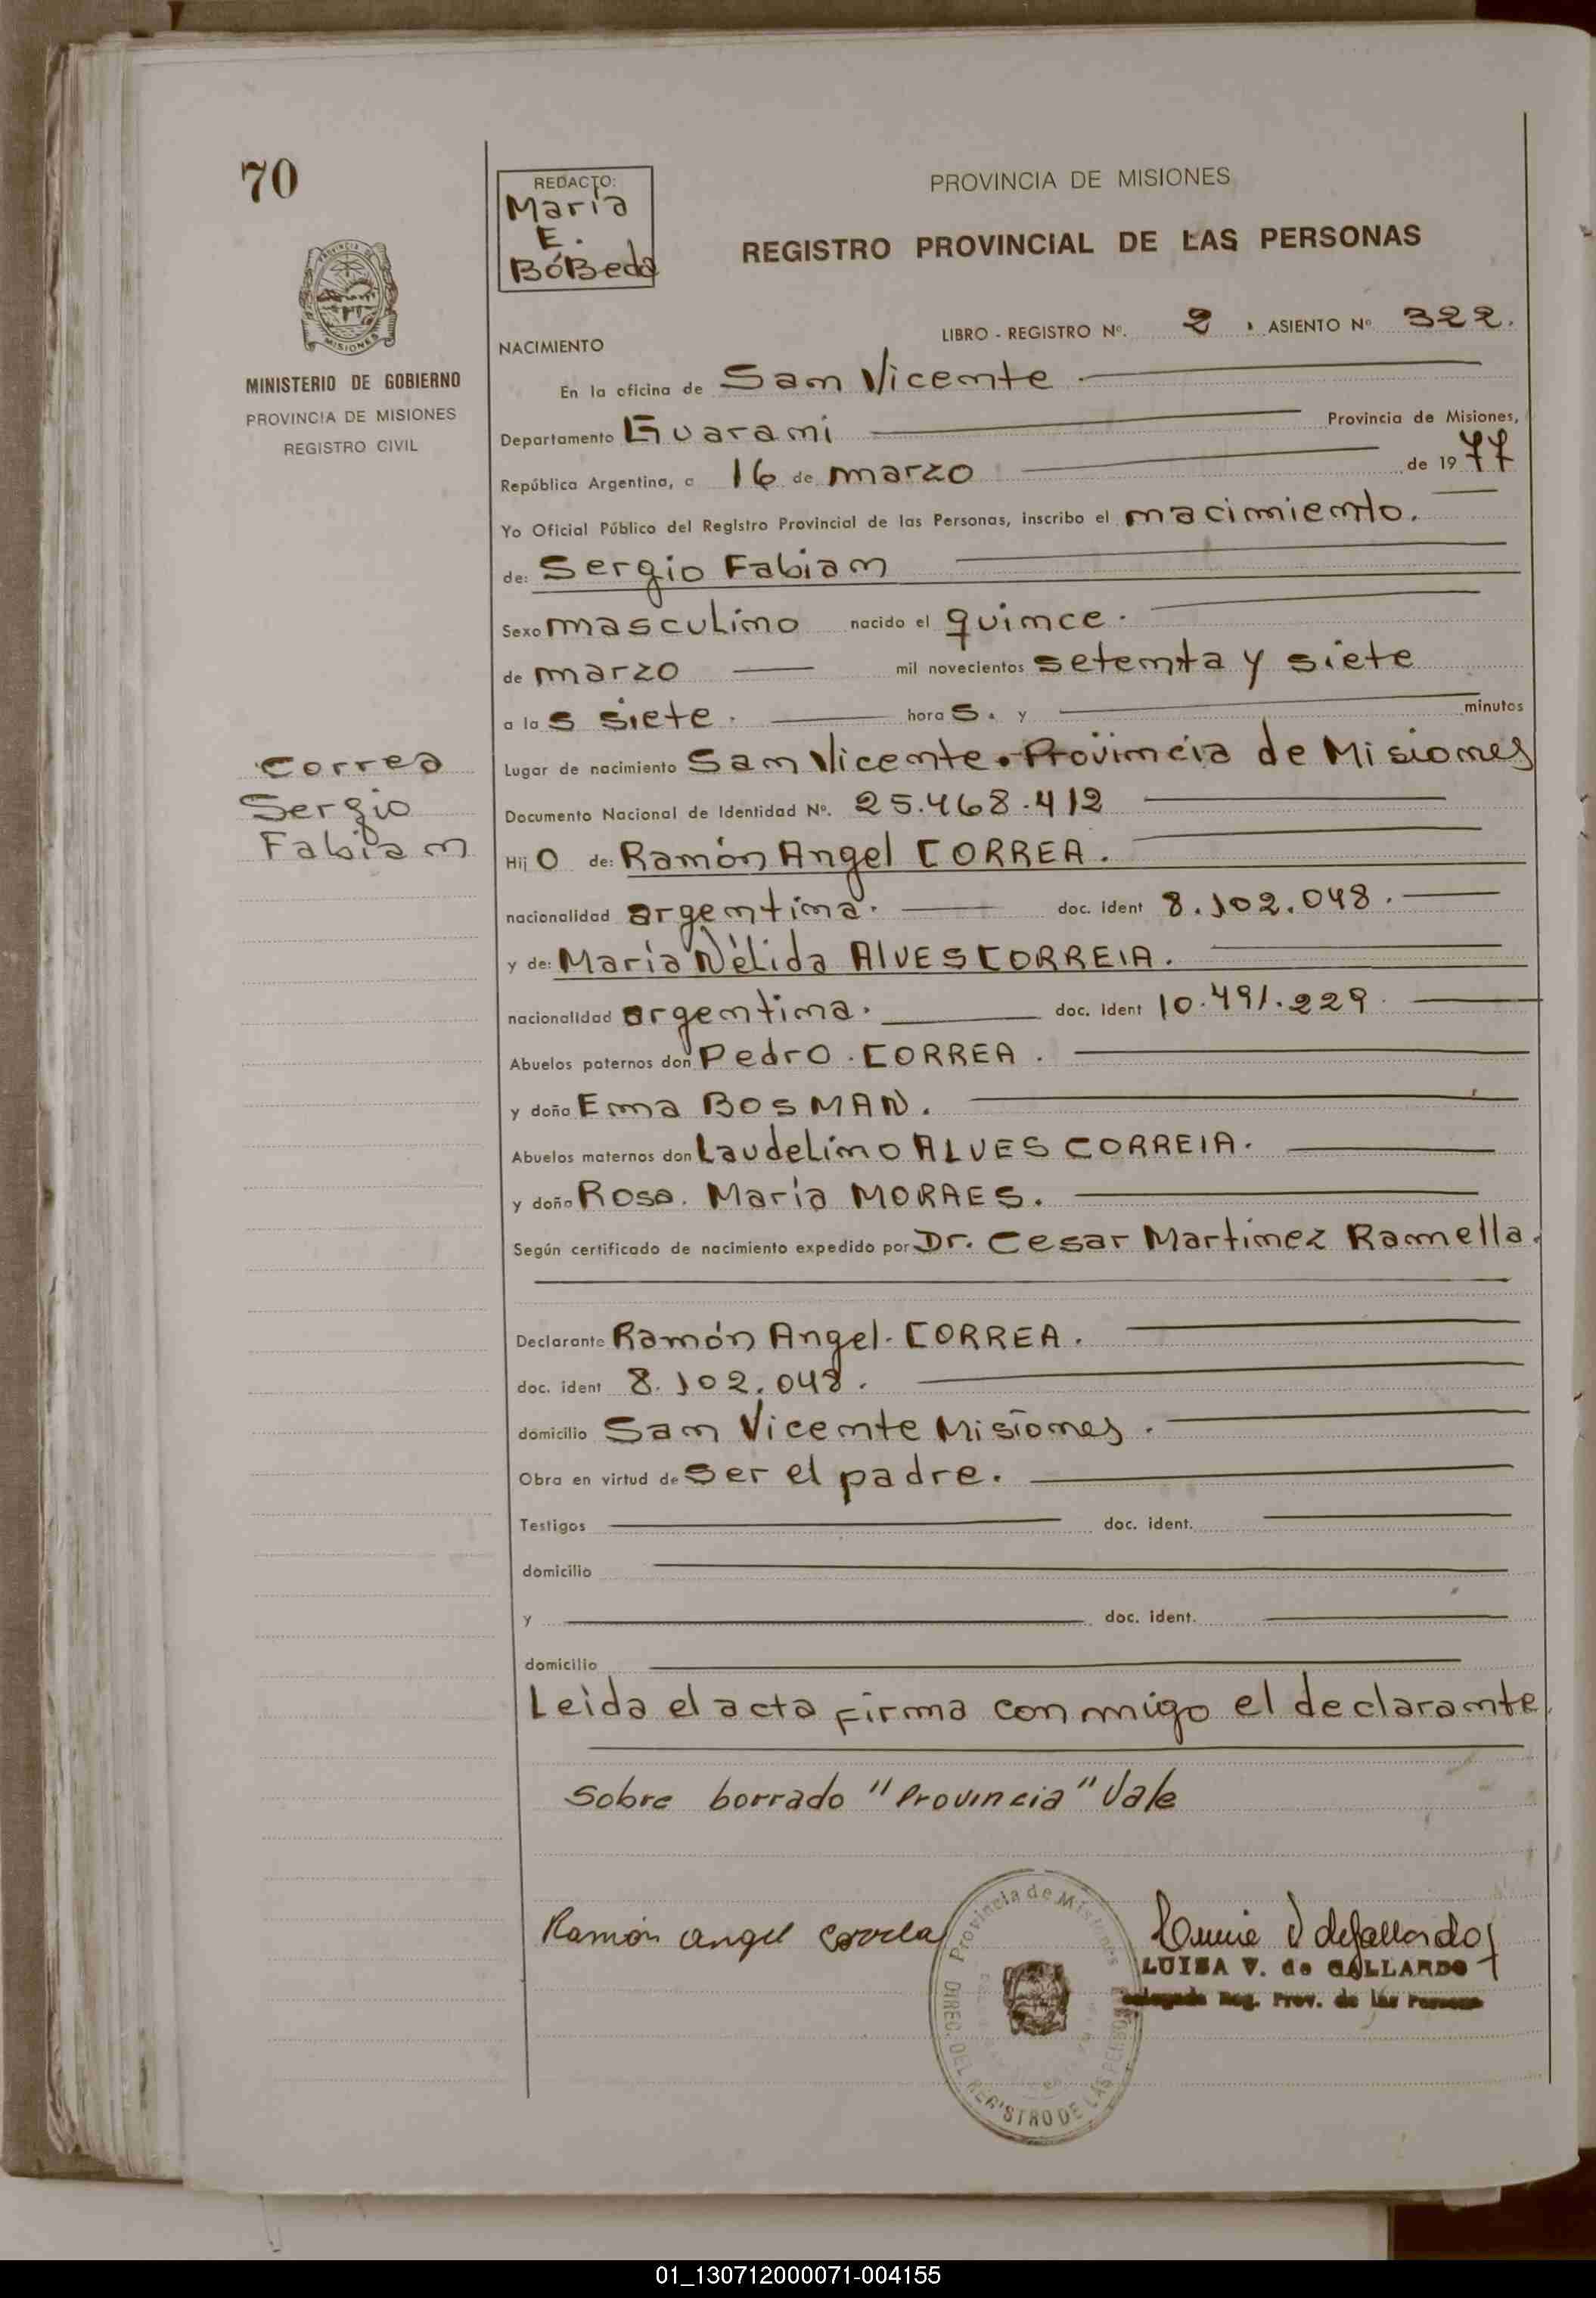 70
REDACTO:
María
E.
BóBeda
PROVINCIA DE MISIONES
REGISTRO PROVINCIAL DE LAS PERSONAS
PROVINCIA DE
MISIONES
MINISTERIO DE GOBIERNO
PROVINCIA DE MISIONES
REGISTRO CIVIL
LIBRO - REGISTRO Nº. 2, ASIENTO Nº 322.
NACIMIENTO
En la oficina de San Vicente.
Departamento Guarani Provincia de Misiones,
República Argentina, a 16 de marzo de 1977
Yo Oficial Público del Registro Provincial de las Personas, inscribo el nacimiento.
de: Sergio Fabian
Sexo masculino nacido el quince.
de marzo mil novecientos setenta y siete
a las siete. horas. y minutos
Lugar de nacimiento San Vicente. Provincia de Misiones
Documento Nacional de Identidad Nº. 25.468.412
Hijo de: Ramón Angel CORREA.
nacionalidad argentina. doc. ident 8.102.048.
y de: María Nélida AlVES CORREIA.
nacionalidad argentina. doc. ident 10.491.229.
Abuelos paternos don Pedro. CORREA.
y doña Ema BOSMAN.
Abuelos maternos don Laudelino ALVES CORREIA.
y doña Rosa. María MORAES.
Según certificado de nacimiento expedido por Dr. Cesar Martinez Ramella.
Correa
Sergio
Fabian
Declarante Ramón Angel. CORREA.
doc. ident 8.102.048.
domicilio San Vicente Misiones.
Obra en virtud de ser el padre.
Testigos doc. ident.
domicilio
y doc. ident.
domicilio
Leida el acta firma conmigo el declarante.
Sobre borrado "Provincia" Vale
Ramón angel correa
LUISA V. de GALLARDO
Delegada Reg. Prov. de las Personas
Provincia de Misiones
DIREC. DEL REGISTRO DE LAS PERSONAS
01_130712000071-004155